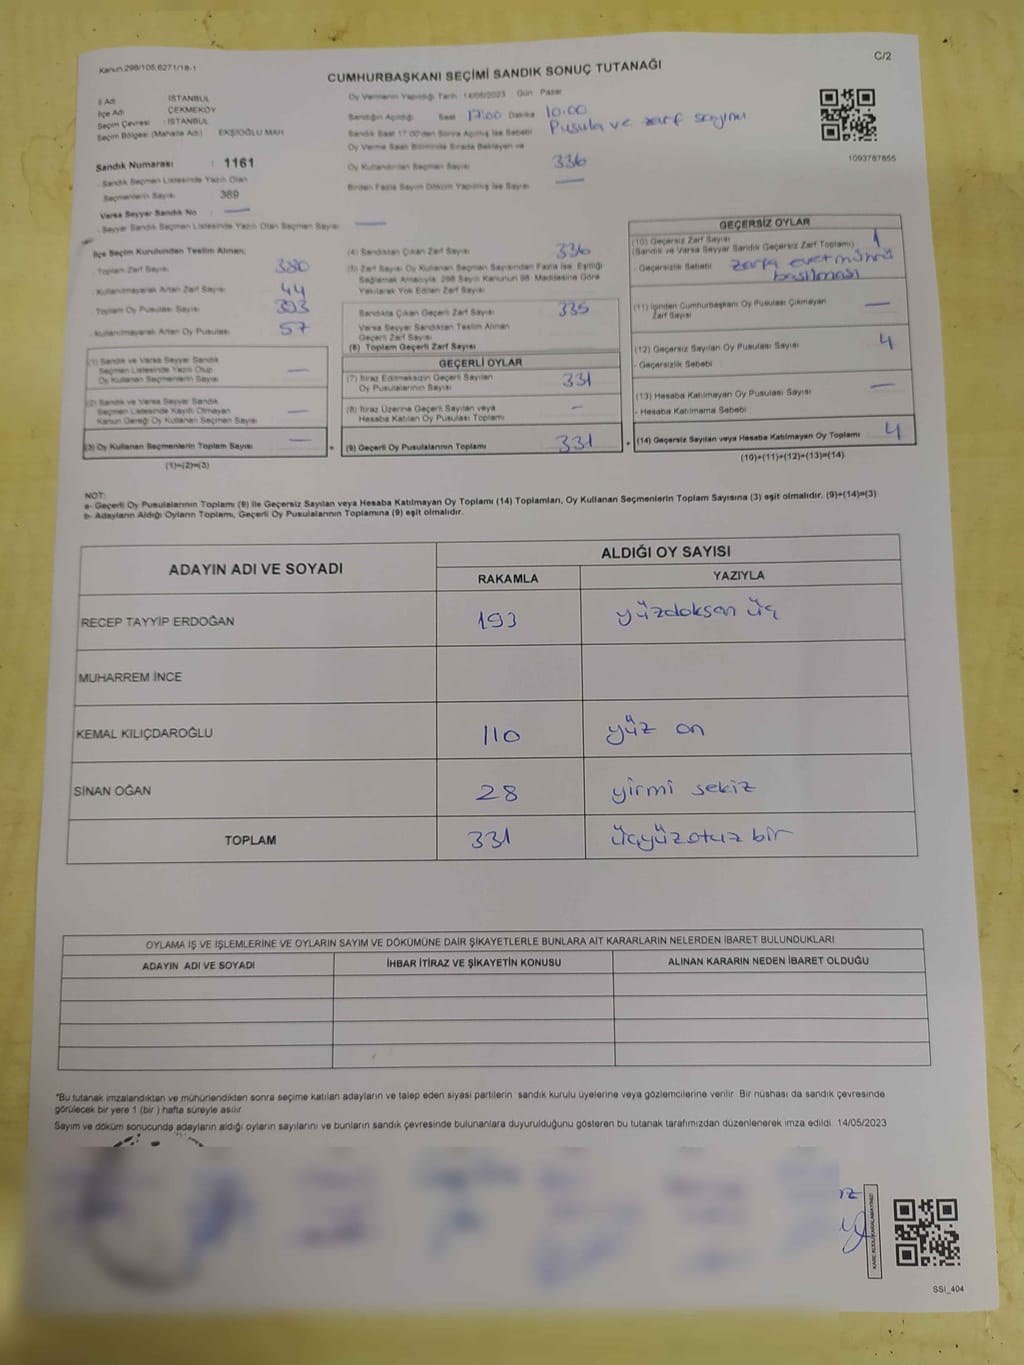 Kanun.298/105,6271/18-1
C/2
CUMHURBAŞKANI SEÇİMİ SANDIK SONUÇ TUTANAĞI
İl Adı İSTANBUL
İlçe Adı ÇEKMEKÖY
Seçim Çevresi : İSTANBUL
Seçim Bölgesi (Mahalle Adı) EKŞİOĞLU MAH
Sandık Numarası : 1161
- Sandık Seçmen Listesinde Yazılı Olan
Seçmenlerin Sayısı 369
Varsa Seyyar Sandık No —
- Seyyar Sandık Seçmen Listesinde Yazılı Olan Seçmen Sayısı —
Oy Vermenin Yapıldığı Tarih 14/05/2023 Gün Pazar
Sandığın Açıldığı Saat 17:00 Dakika 10:00
Sandık Saat 17:00'den Sonra Açılmış İse Sebebi Pusula ve zarf sayımı
Oy Verme Saati Bitiminde Sırada Bekleyen ve
Oy Kullandırılan Seçmen Sayısı 336
Birden Fazla Sayım Döküm Yapılmış İse Sayısı —
1093787855
İlçe Seçim Kurulundan Teslim Alınan;
- Toplam Zarf Sayısı 380
- Kullanılmayarak Artan Zarf Sayısı 44
- Toplam Oy Pusulası Sayısı 393
- Kullanılmayarak Artan Oy Pusulası 57
(1) Sandık ve Varsa Seyyar Sandık
Seçmen Listesinde Yazılı Olup
Oy Kullanan Seçmenlerin Sayısı —
(2) Sandık ve Varsa Seyyar Sandık
Seçmen Listesinde Kayıtlı Olmayan
Kanun Gereği Oy Kullanan Seçmen Sayısı —
(3) Oy Kullanan Seçmenlerin Toplam Sayısı —
(1)+(2)=(3)
(4) Sandıktan Çıkan Zarf Sayısı 336
(5) Zarf Sayısı Oy Kullanan Seçmen Sayısından Fazla İse, Eşitliği
Sağlamak Amacıyla, 298 Sayılı Kanunun 98. Maddesine Göre
Yakılarak Yok Edilen Zarf Sayısı
Sandıkta Çıkan Geçerli Zarf Sayısı 335
Varsa Seyyar Sandıktan Teslim Alınan
Geçerli Zarf Sayısı
(6) Toplam Geçerli Zarf Sayısı
GEÇERLİ OYLAR
(7) İtiraz Edilmeksizin Geçerli Sayılan
Oy Pusulalarının Sayısı 331
(8) İtiraz Üzerine Geçerli Sayılan veya
Hesaba Katılan Oy Pusulası Toplamı -
(9) Geçerli Oy Pusulalarının Toplamı 331
GEÇERSİZ OYLAR
(10) Geçersiz Zarf Sayısı
(Sandık ve Varsa Seyyar Sandık Geçersiz Zarf Toplamı) 1
- Geçersizlik Sebebi zarfa evet mührü
basılması
(11) İçinden Cumhurbaşkanı Oy Pusulası Çıkmayan
Zarf Sayısı —
(12) Geçersiz Sayılan Oy Pusulası Sayısı 4
- Geçersizlik Sebebi
(13) Hesaba Katılmayan Oy Pusulası Sayısı —
- Hesaba Katılmama Sebebi
(14) Geçersiz Sayılan veya Hesaba Katılmayan Oy Toplamı 4
(10)+(11)+(12)+(13)=(14)
NOT:
a- Geçerli Oy Pusulalarının Toplamı (9) ile Geçersiz Sayılan veya Hesaba Katılmayan Oy Toplamı (14) Toplamları, Oy Kullanan Seçmenlerin Toplam Sayısına (3) eşit olmalıdır. (9)+(14)=(3)
b- Adayların Aldığı Oyların Toplamı, Geçerli Oy Pusulalarının Toplamına (9) eşit olmalıdır.
ADAYIN ADI VE SOYADI
ALDIĞI OY SAYISI
RAKAMLA YAZIYLA
RECEP TAYYİP ERDOĞAN 193 yüzdoksan üç
MUHARREM İNCE
KEMAL KILIÇDAROĞLU 110 yüz on
SİNAN OĞAN 28 yirmi sekiz
TOPLAM 331 üçyüzotuz bir
OYLAMA İŞ VE İŞLEMLERİNE VE OYLARIN SAYIM VE DÖKÜMÜNE DAİR ŞİKAYETLERLE BUNLARA AİT KARARLARIN NELERDEN İBARET BULUNDUKLARI
ADAYIN ADI VE SOYADI İHBAR İTİRAZ VE ŞİKAYETİN KONUSU ALINAN KARARIN NEDEN İBARET OLDUĞU
*Bu tutanak imzalandıktan ve mühürlendikten sonra seçime katılan adayların ve talep eden siyasi partilerin sandık kurulu üyelerine veya gözlemcilerine verilir. Bir nüshası da sandık çevresinde
görülecek bir yere 1 (bir ) hafta süreyle asılır
Sayım ve döküm sonucunda adayların aldığı oyların sayılarını ve bunların sandık çevresinde bulunanlara duyurulduğunu gösteren bu tutanak tarafımızdan düzenlenerek imza edildi. 14/05/2023
SSI_404